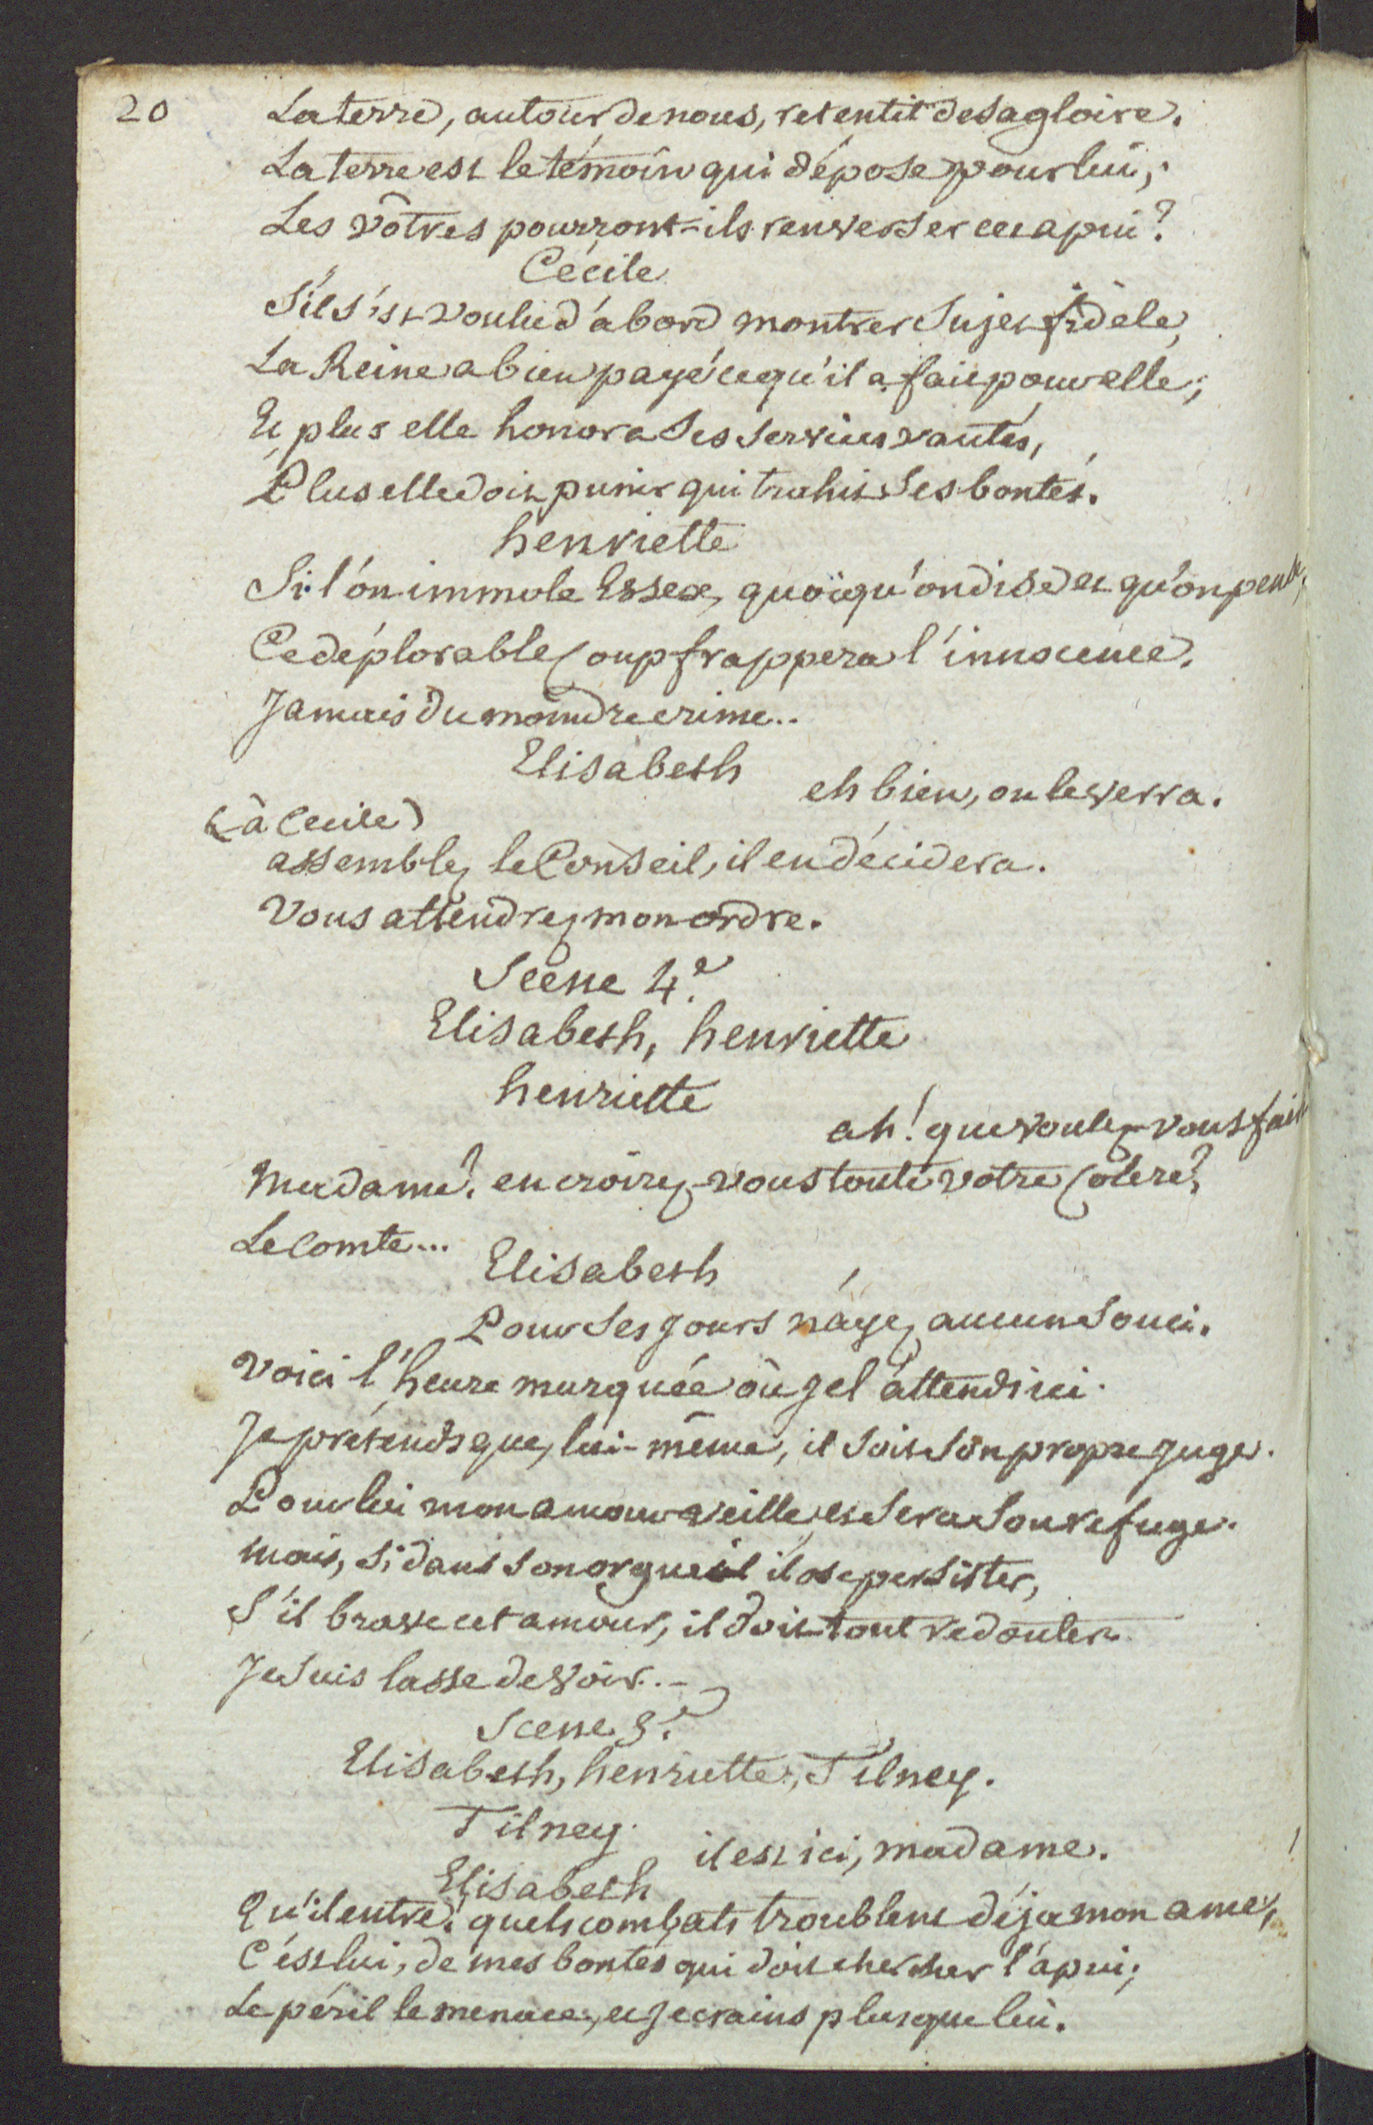 20
La terre, autour de nous, retentit de sa gloire.
La terre est le témoin qui dépose pour lui;
Les vôtres pourront-ils renverser cet apui?
Cécile
S'il s'est voulu d'abord montrer sujet fidele,
La Reine a bien payé ce qu'il a fait pour elle;
Et plus elle honora ses services vantés,
Plus elle doit punir qui trahit ses bontés.
henriette
Si l'on immole Essex, quoiqu'on dise et qu'on pense,
Ce déplorable coup frappera l'innocence.
Jamais du moindre crime..
Elisabeth
eh bien, on le verra.
(à Cecile)
assemblez le Conseil, il en décidera.
Vous attendrez mon ordre.
Scene 4.e
Elisabeth, henriette
henriette
ah! que voulez-vous faire
Madame? en croirez-vous toute votre colere?
Le Comte...
Elisabeth
Pour ses jours n'ayez aucun souci.
Voici l'heure marquée où je l'attends ici.
Je prétends que, lui-même, il soit son propre juge.
Pour lui mon amour veille, et sera son refuge.
Mais, si dans son orgueil il ose persister,
S'il brave cet amour, il doit tout redouter.
Je suis lasse de voir..-
Scene 5.e
Elisabeth, henriette, Tilney.
Tilney.
il est ici, madame.
Elisabeth
Qu'il entre. quels combats troublent déja mon ame!
C'est lui, de mes bontés qui doit chercher l'apui;
Le péril le menace, et je crains plus que lui.